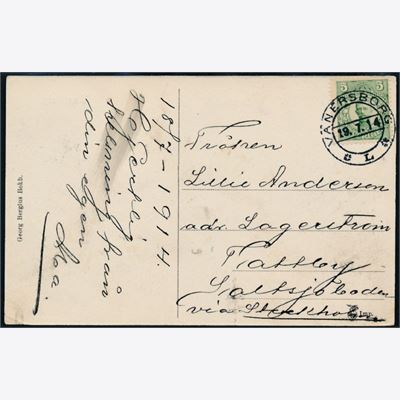 18/7-1914.
hälsning från
din egen
Georg Bergius Bokh.
5 5
VÄNERSBORG
19.7.14
L
Fröken
Lillie Andersen
adr. Lagerström
Tattby
Saltsjöbaden
via Stockholm
Imp.